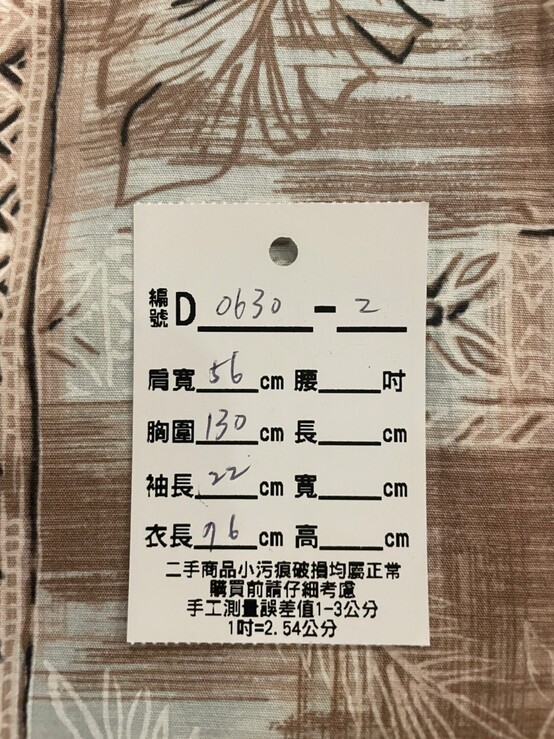 編號D 0630 - 2
肩寬 56 cm 腰____吋
胸圍 130 cm 長____cm
袖長 22 cm 寬____cm
衣長 76 cm 高____cm
二手商品小污痕破損均屬正常
購買前請仔細考慮
手工測量誤差值1-3公分
1吋=2.54公分